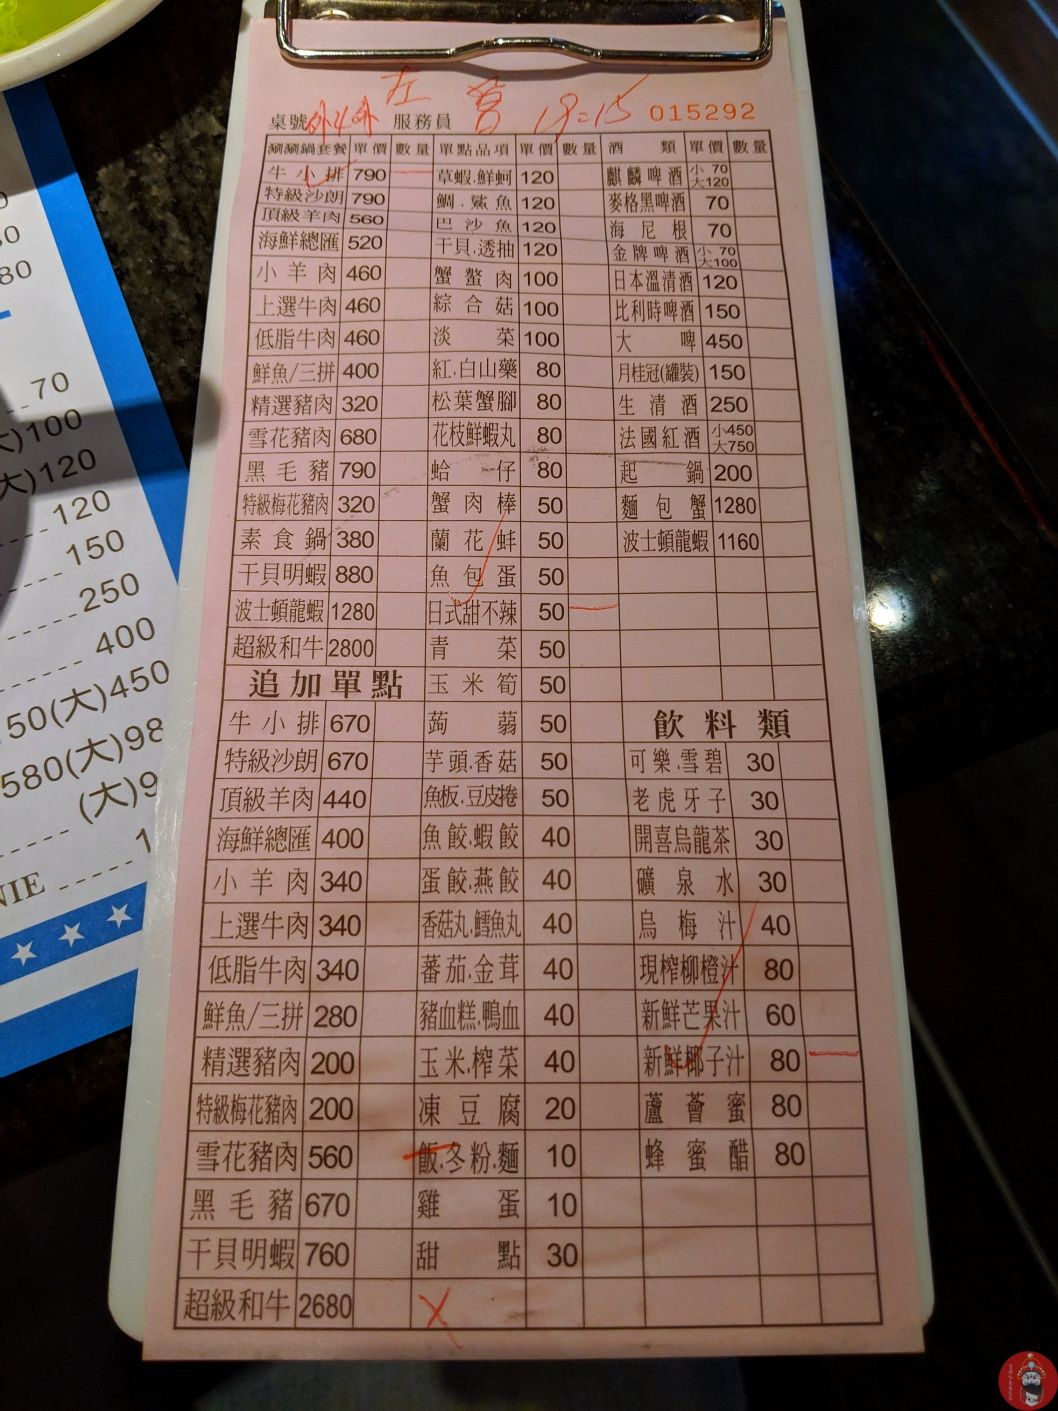 桌號 服務員 左 營 19:15 015292
涮涮鍋套餐 單價 數量 單點品項 單價 數量 酒類 單價 數量
牛小排 790 草蝦.鮮蚵 120 麒麟啤酒 小70 大120
特級沙朗 790 鯛.鯊魚 120 麥格黑啤酒 70
頂級羊肉 560 巴沙魚 120 海尼根 70
海鮮總匯 520 干貝.透抽 120 金牌啤酒 小70 大100
小羊肉 460 蟹螯肉 100 日本溫清酒 120
上選牛肉 460 綜合菇 100 比利時啤酒 150
低脂牛肉 460 淡菜 100 大啤 450
鮮魚/三拼 400 紅.白山藥 80 月桂冠(罐裝) 150
精選豬肉 320 松葉蟹腳 80 生清酒 250
雪花豬肉 680 花枝鮮蝦丸 80 法國紅酒 小450 大750
黑毛豬 790 蛤仔 80 起鍋 200
特級梅花豬肉 320 蟹肉棒 50 麵包蟹 1280
素食鍋 380 蘭花蚌 50 波士頓龍蝦 1160
干貝明蝦 880 魚包蛋 50
波士頓龍蝦 1280 日式甜不辣 50
超級和牛 2800 青菜 50
追加單點 玉米筍 50
牛小排 670 蒟蒻 50 飲料類
特級沙朗 670 芋頭.香菇 50 可樂.雪碧 30
頂級羊肉 440 魚板.豆皮捲 50 老虎牙子 30
海鮮總匯 400 魚餃.蝦餃 40 開喜烏龍茶 30
小羊肉 340 蛋餃.燕餃 40 礦泉水 30
上選牛肉 340 香菇丸.鱈魚丸 40 烏梅汁 40
低脂牛肉 340 蕃茄.金茸 40 現榨柳橙汁 80
鮮魚/三拼 280 豬血糕.鴨血 40 新鮮芒果汁 60
精選豬肉 200 玉米.榨菜 40 新鮮椰子汁 80
特級梅花豬肉 200 凍豆腐 20 蘆薈蜜 80
雪花豬肉 560 飯.冬粉.麵 10 蜂蜜醋 80
黑毛豬 670 雞蛋 10
干貝明蝦 760 甜點 30
超級和牛 2680
70
(大)100
(大)120
120
150
250
400
50(大)450
580(大)98
(大)9
NIE